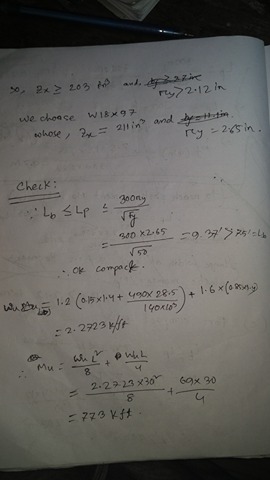 so, Zx ≥ 203 in³ and
ry > 2.12 in
we choose W18×97
whose, Zx = 211 in³ and
ry = 2.65 in.
Check:
∵ Lb ≤ Lp ≤ 300ry / √Fy
= 300 × 2.65 / √50 = 9.37' > 7.5' = Lb
∴ OK compact.
= 1.2 (0.75×1.4 + 490×28.5 / 140×10³) + 1.6 × (0.85×1.4)
= 2.2723 k/ft
∴ Mu = Wu L² / 8 + L / 4
= 2.2723×30² / 8 + 69×30 / 4
= 773 k ft.